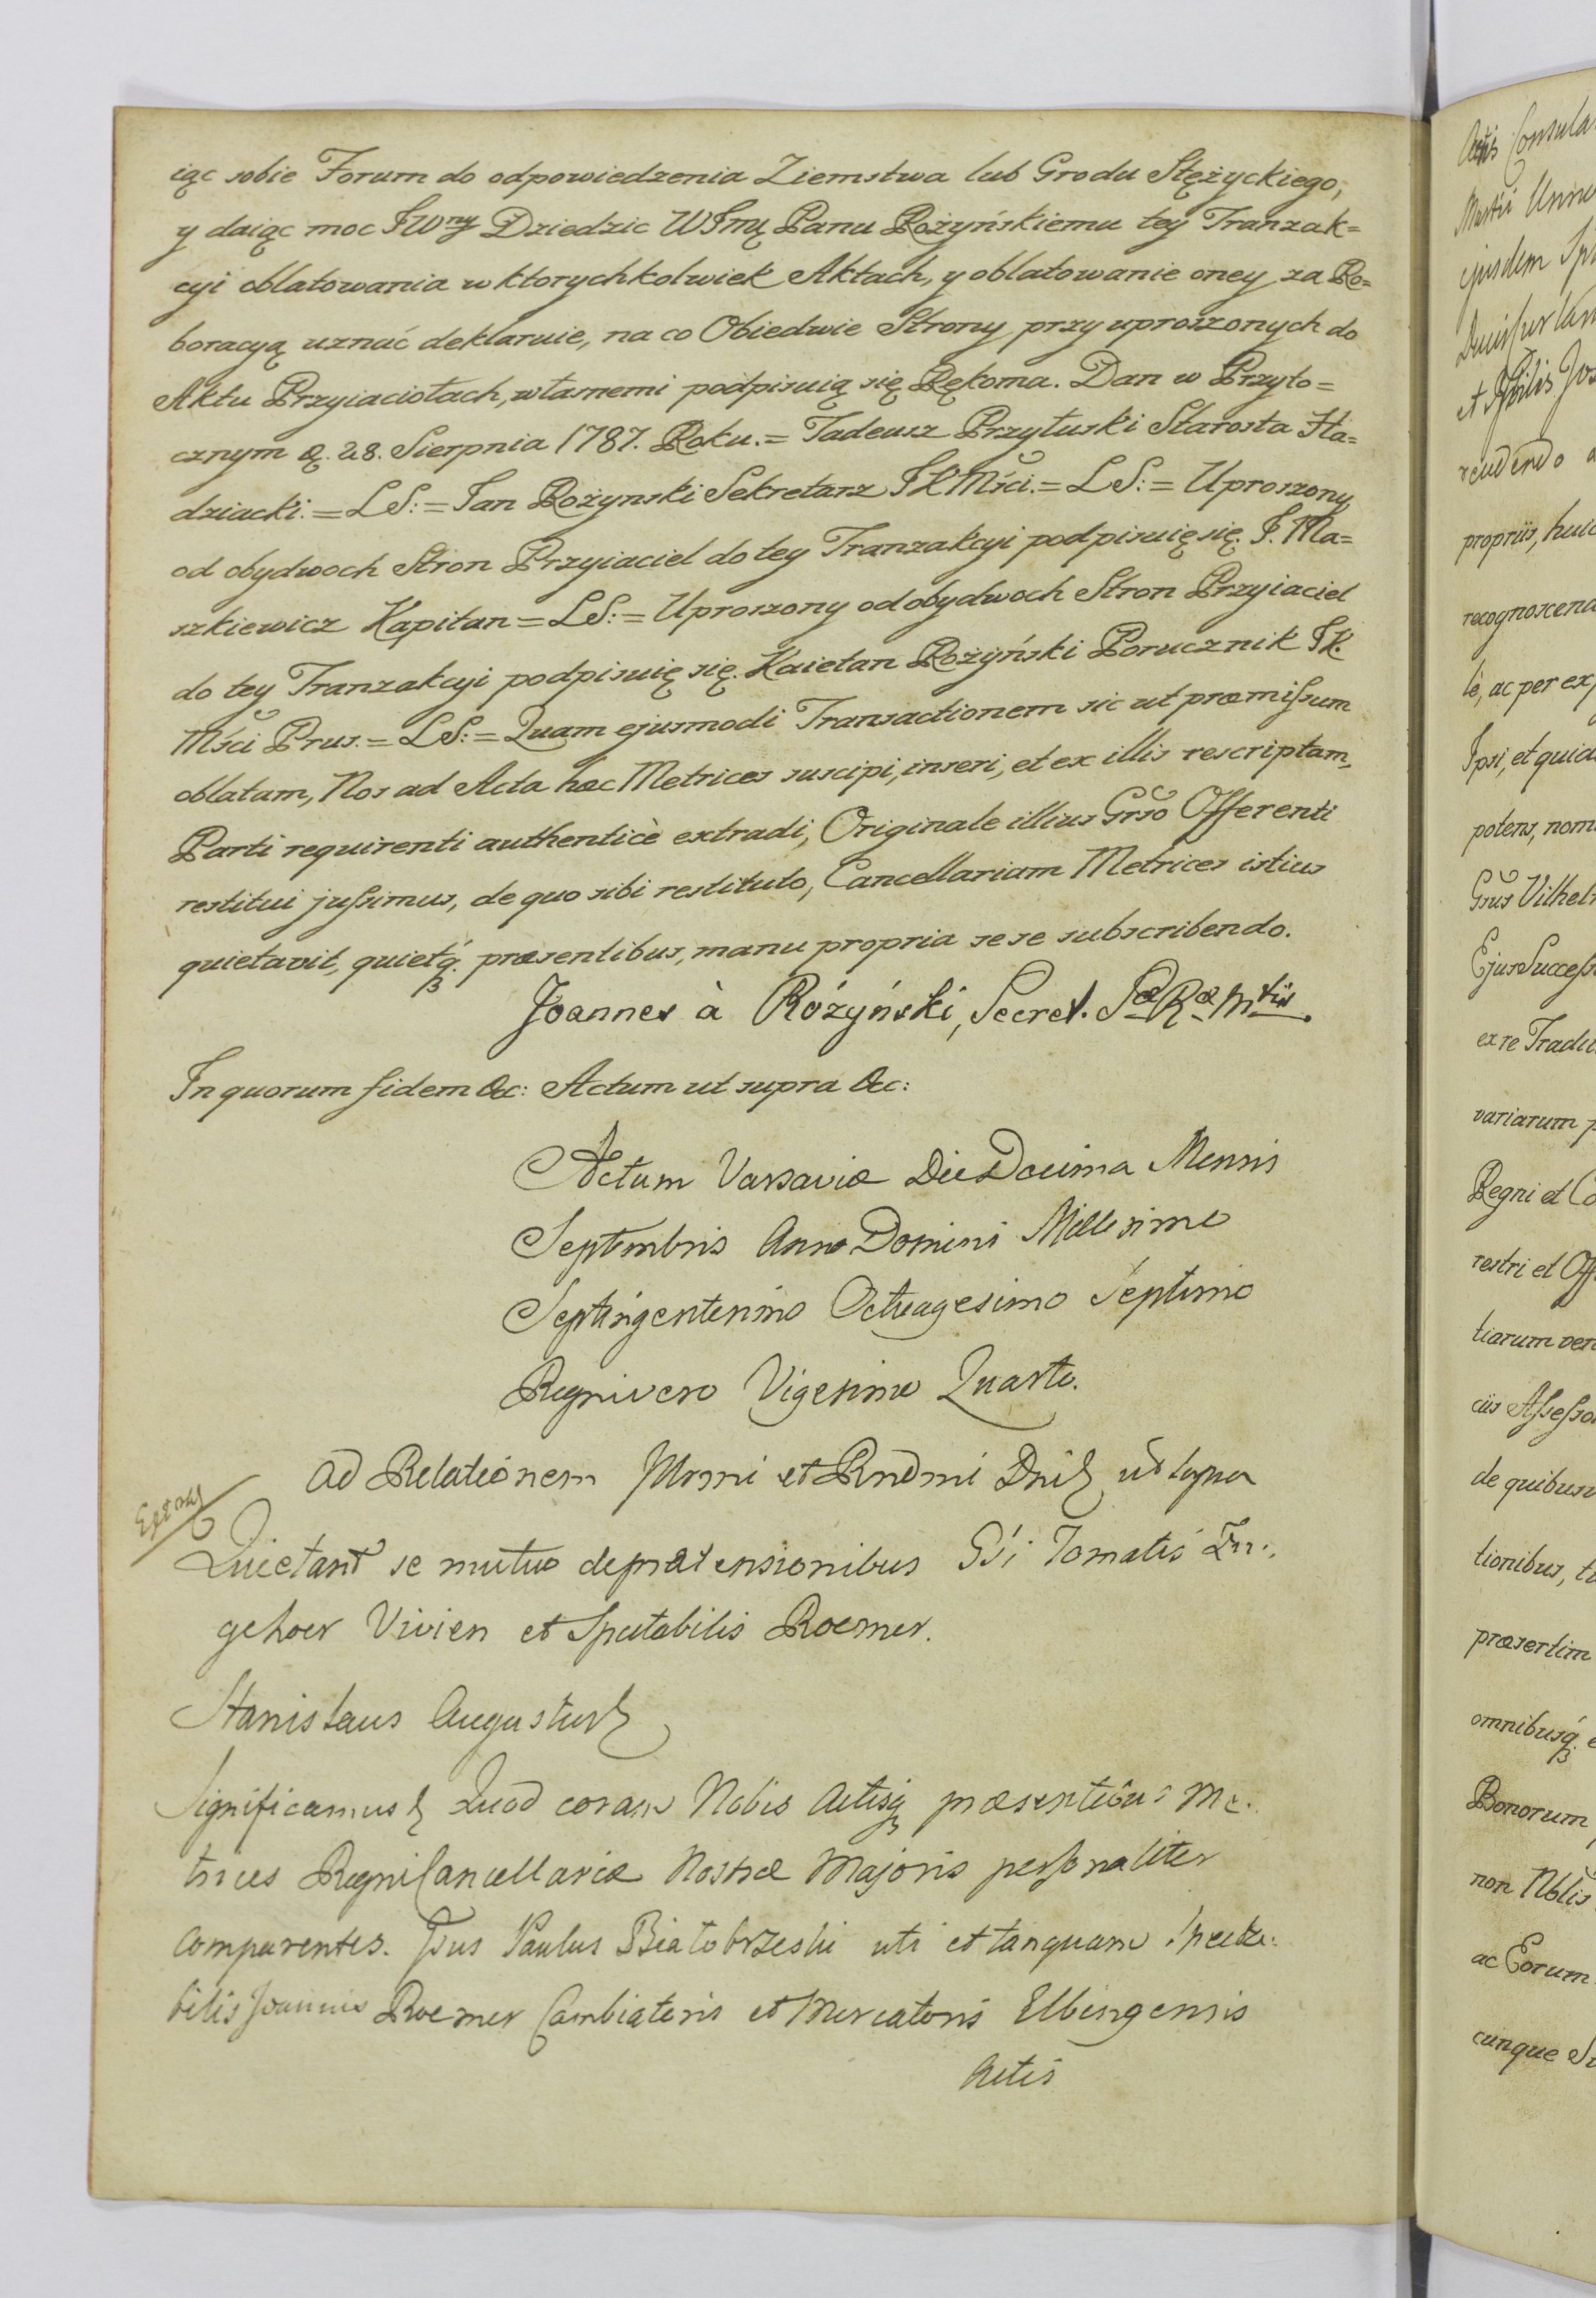 iąc sobie Forum do odpowiedzenia Ziemstwa lub Grodu Stężyckiego,
y daiąc moc JWny Dziedzic WJmę Panu Rożyńskiemu tey Tranzak=
cyi oblatowania w ktorychkolwiek Aktach, y oblatowanie oney za Ro=
boracyą uznać deklaruie, na co Obiedwie Strony przy uproszonych do
Aktu Przyiaciołach, własnemi podpisuią się Rękoma. Dan w Przyto=
cznym d. 28. Sierpnia 1787. Roku. = Tadeusz Przyłuski Starosta Ha=
dziacki. = LS: = Jan Rożynski Sekretarz JKMści. = LS: = Uproszony
od obydwoch Stron Przyiaciel do tey Tranzakcyi podpisuię się. J. Ma=
szkiewicz Kapitan = LS: = Uproszony od obydwoch Stron Przyiaciel
do tey Tranzakcyi podpisuię się. Kaietan Rożyński Porucznik JK.
Mści Prus. = LS: = Quam ejusmodi Transactionem sic ut præmissum
oblatam, Nos ad Acta hæc Metrices suscipi, inseri, et ex illis rescriptam,
Parti requirenti authenticè extradi, Originale illius Grso Offerenti
restitui jussimus, de quo sibi restituto, Cancellariam Metrices istius
quietavit, quietq. præsentibus, manu propria sese subscribendo.
Joannes à Różyński, Secret. Sæ Ræ Mtis
In quorum fidem &c: Actum ut supra &c:
Actum Varsaviæ Die Decima Mensis
Septembris Anno Domini Millesimo
Septingentesimo Octuagesimo Septimo
Regni vero Vigesimo Quarto.
Ad Relationem Illrmi et Rndmi Dni ut supra
Quietant se mutuo de prætensionibus Gsi Tomatis
gehoer Vivien et Spectabilis Roemer.
Stanislaus Augustus
Significamus Quod coram Nobis Actisq præsentibus Me.
trices Regni Cancellariæ Nostræ Majoris personaliter
comparentes. Gsus Paulus Białobrzeski uti et tanquam Specta.
bilis Joannis Roemer Cambiatoris et Mercatoris Elbingensis
Actis
Actis Consula
ejusdem
et
propriis, huic
recognoscen
lè, ac per ex
Ipsi, et quid
potens, nom
Gsus Vilhel
Ejus Success
ex re Tradi
variarum p
Regni et Co
restri et Off
tiarum ver
ciis Assesso
de quibus
tionibus, t
præsertim
omnibusq. e
Bonorum
non Nblis
ac Eorum
cunque S